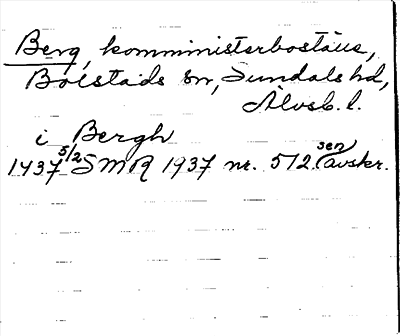 Berg, komministerboställe,
Bolstads sn, Sundals hd,
Älvsb. l.
i Bergh
1437 5/2 SMR 1937 nr. 512. sen avskr.